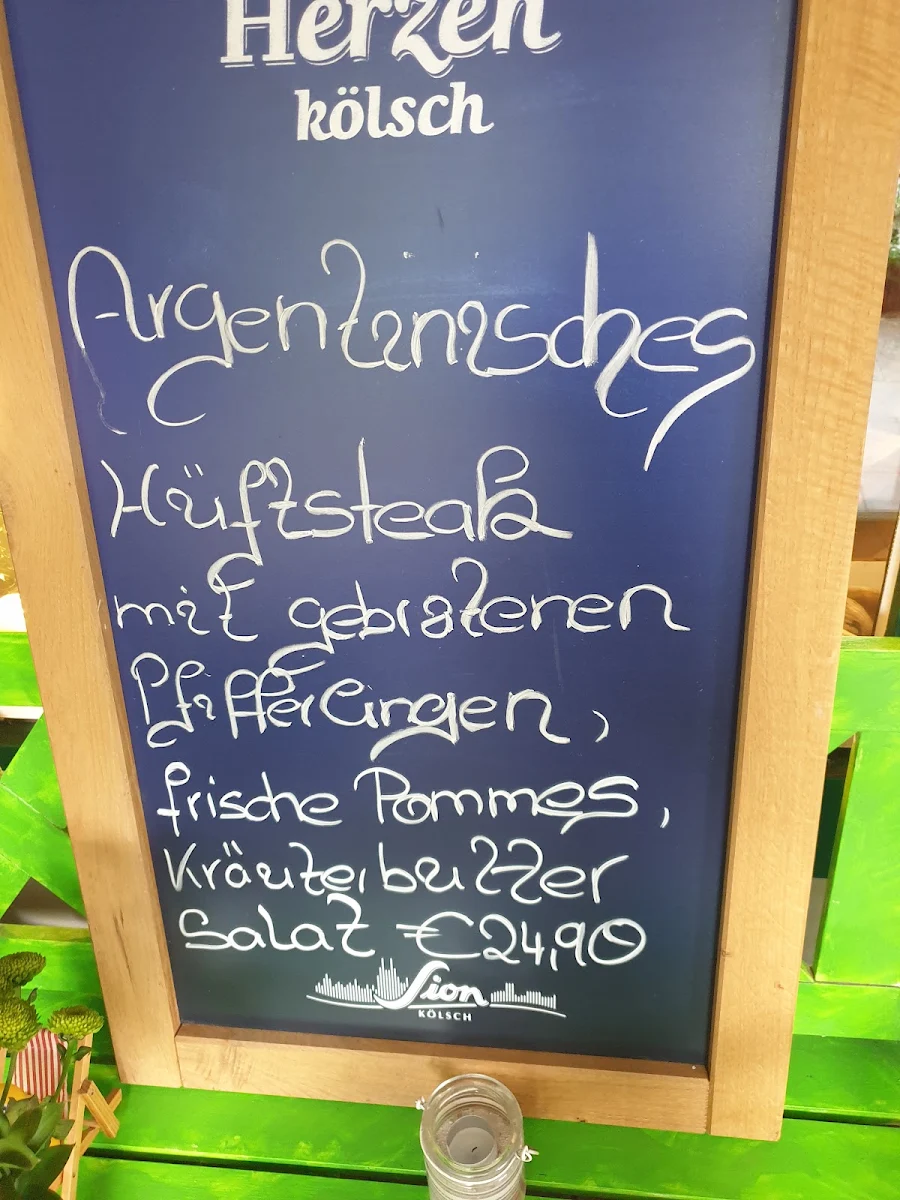 Herzen
kölsch
Argentinisches
Hüftsteak
mit gebratenen
Pfifferlingen,
frische Pommes,
Kräuterbutter
Salat €24,90
Sion
KÖLSCH